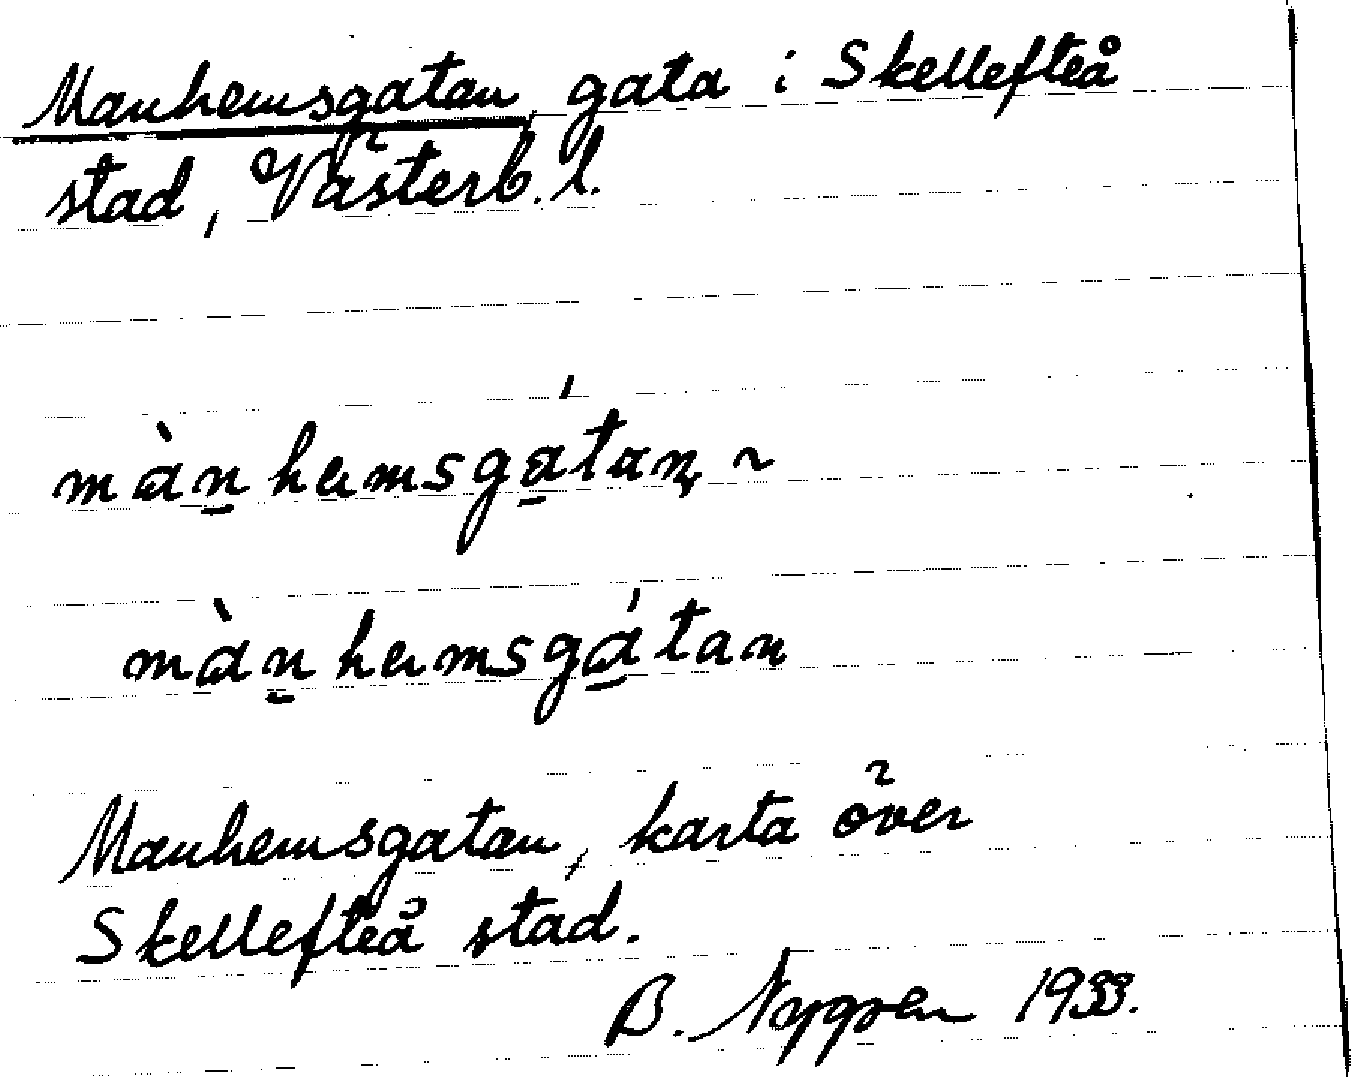 Manhemsgatan, gata i Skellefteå
stad, Västerb. l.
màn̲hemsga̲̍tan ~
màn̲hemsga̲̍tan
Manhemsgatan, karta över
Skellefteå stad.
B. Nygren 1933.